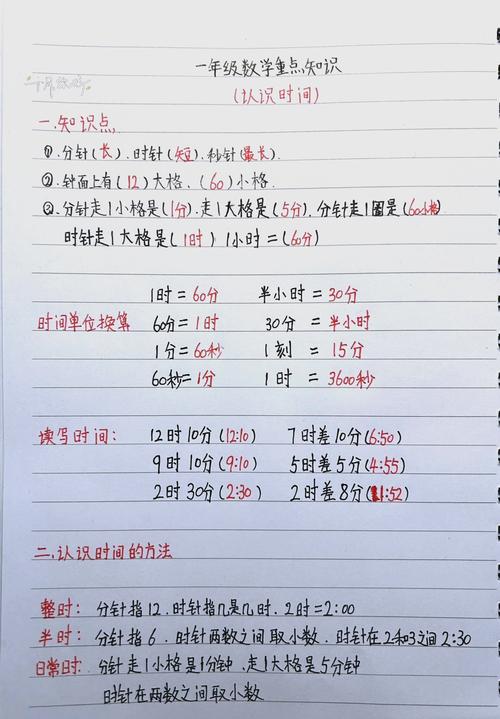 一年级数学重点知识
(认识时间)
一.知识点
①.分针(长).时针(短).秒针(最长).
②.钟面上有(12)大格、(60)小格.
③.分针走1小格是(1分).走1大格是(5分).分针走1圈是(60小格)
时针走1大格是(1时) 1小时=(60分)
1时=60分 半小时=30分
时间单位换算 60分=1时 30分=半小时
1分=60秒 1刻=15分
60秒=1分 1时=3600秒
读写时间: 12时10分(12:10) 7时差10分(6:50)
9时10分(9:10) 5时差5分(4:55)
2时30分(2:30) 2时差8分(1:52)
二.认识时间的方法
整时: 分针指12.时针指几是几时.2时=2:00
半时: 分针指6.时针两数之间取小数.时针在2和3之间2:30
日常时: 分针走1小格是1分钟.走1大格是5分钟
时针在两数之间取小数